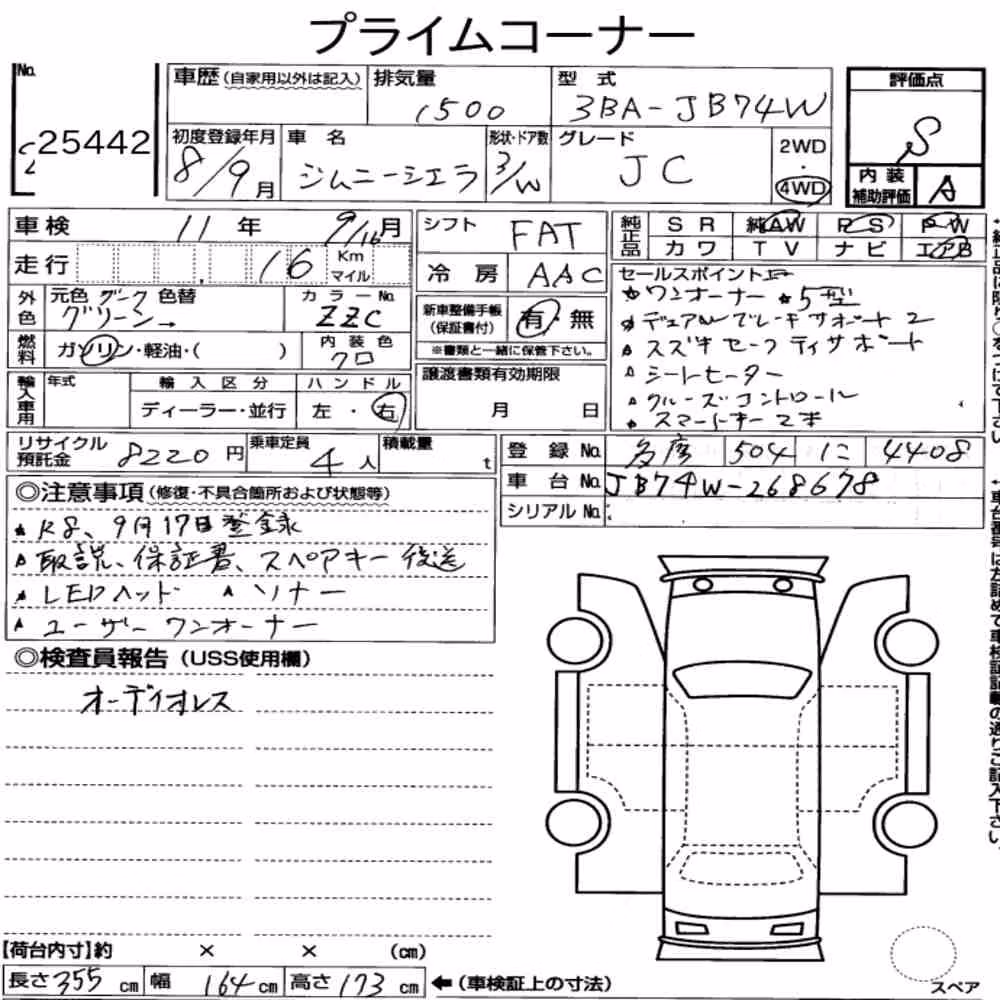 プライムコーナー
No.
25442
車歴(自家用以外は記入)
排気量
1500
型 式
3BA-JB74W
評価点
S
初度登録年月
8/9月
車 名
ジムニーシエラ
形状・ドア数
3/W
グレード
JC
2WD
・
4WD
内装補助評価
A
車検 11年 9/16月
シフト FAT
純正品 SR 純AW PS PW
カワ TV ナビ エアB
走行 16 Km マイル
冷 房 AAC
セールスポイント
★ワンオーナー ★5型
デュアルブレーキサポート2
スズキセーフティサポート
シートヒーター
クルーズコントロール
スマートキー2本
外色 元色 ダークグリーン 色替
カラーNo. ZZC
新車整備手帳(保証書付) 有・無
※書類と一緒に保管下さい。
燃料 ガソリン・軽油・( )
内装色 クロ
輸入車用 年式
輸入区分 ディーラー・並行
ハンドル 左・右
譲渡書類有効期限
月 日
リサイクル預託金 8220円
乗車定員 4人
積載量 t
登 録 No. 多摩 504 に 4408
車 台 No. JB74W-268678
シリアルNo.
◎注意事項(修復・不具合箇所および状態等)
R8、9月17日登録
取説、保証書、スペアキー後送
LEDヘッド ソナー
ユーザーワンオーナー
◎検査員報告(USS使用欄)
オーディオレス
【荷台内寸】約 × × (cm)
長さ355cm 幅 164cm 高さ173cm ←(車検証上の寸法)
スペア